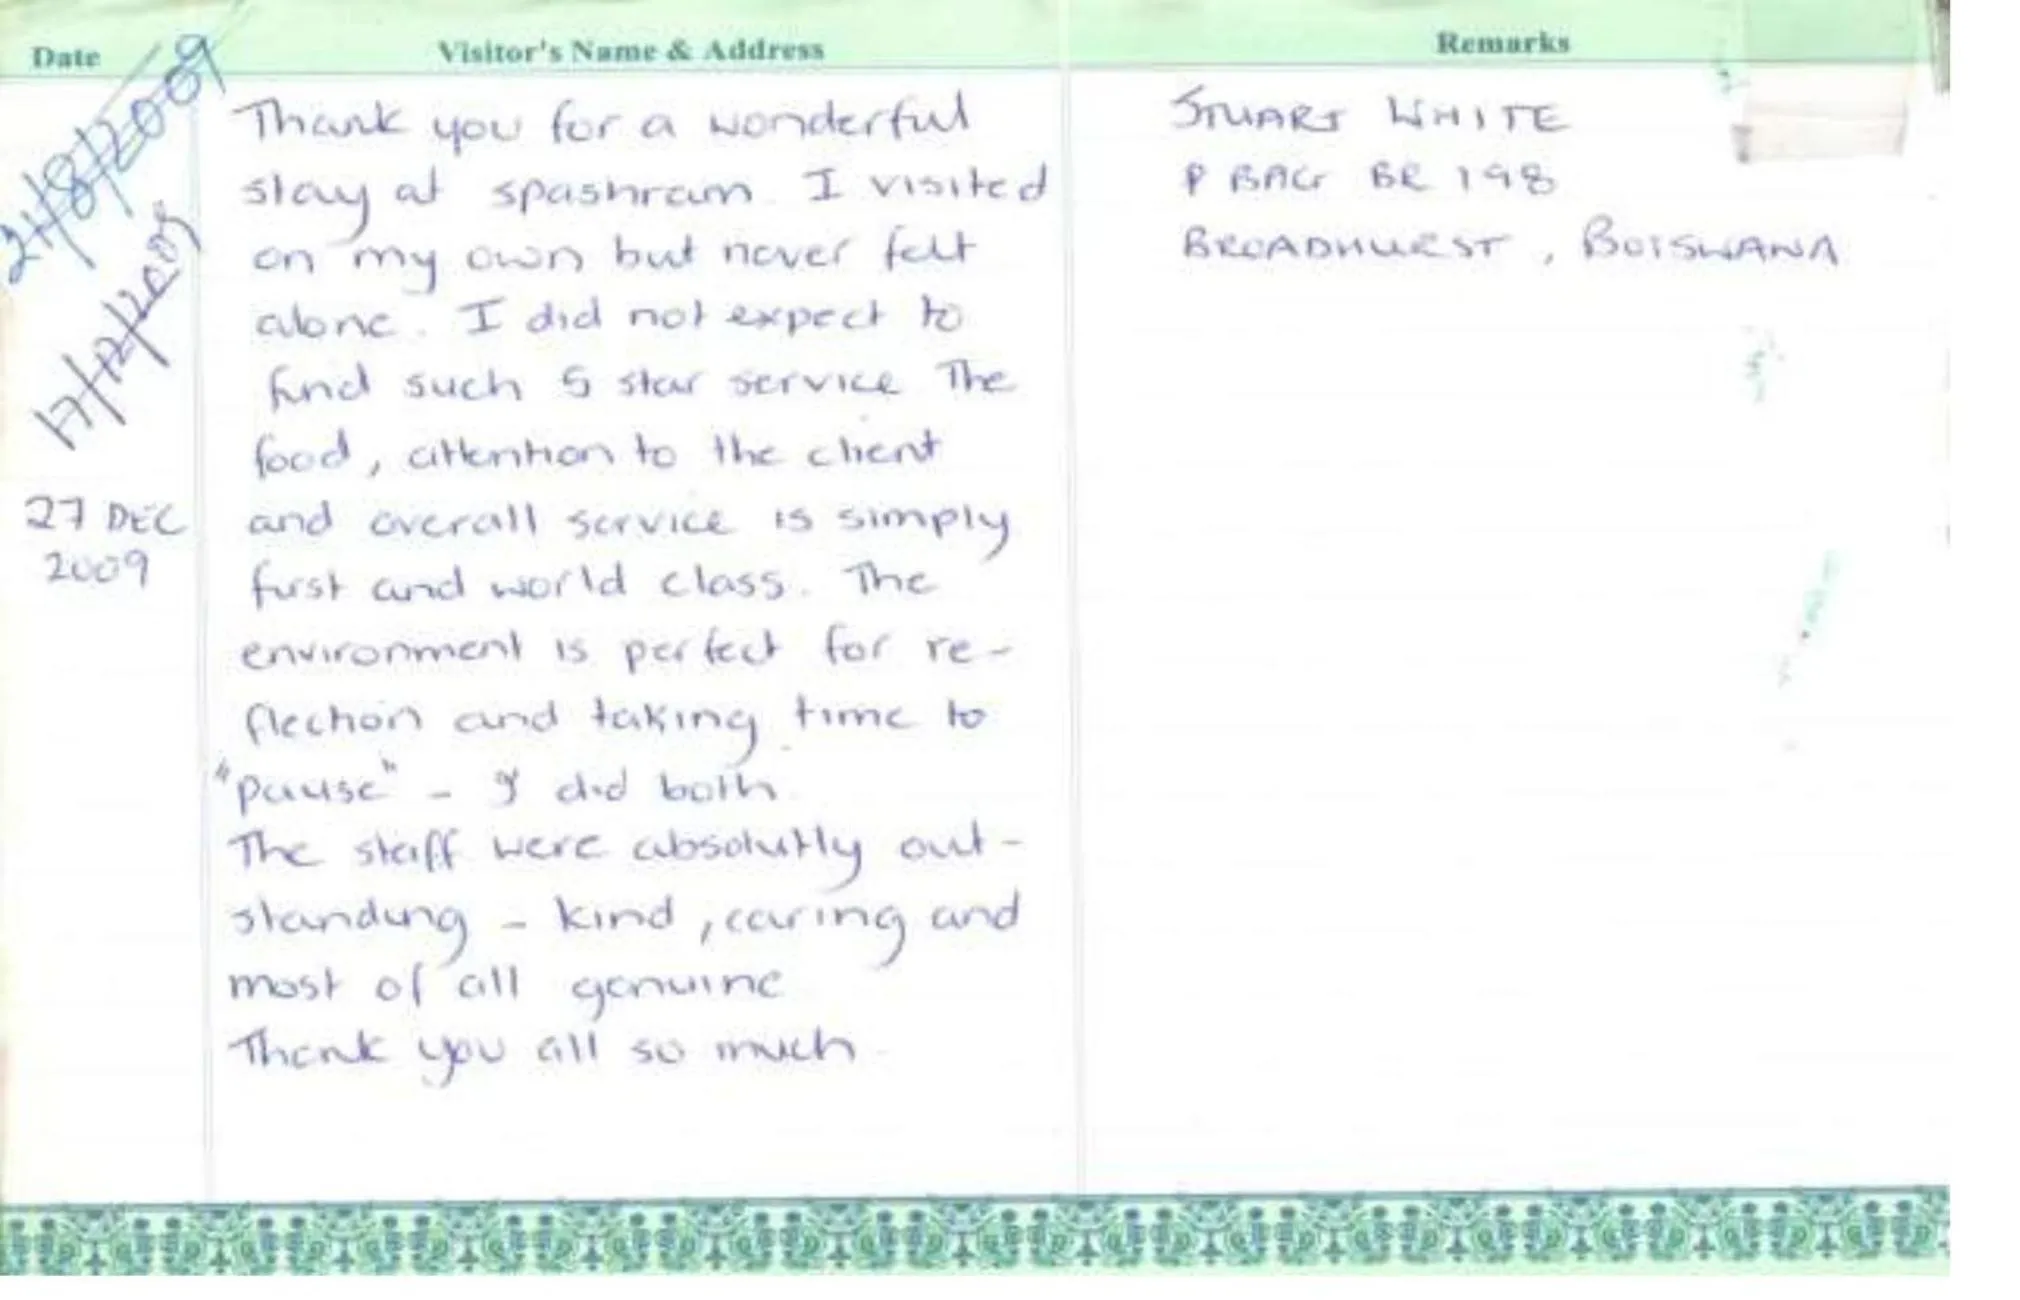 Date Visitor's Name & Address Remarks
21/8/2009
17/12/2009
27 DEC
2009
Thank you for a wonderful
stay at spashram. I visited
on my own but never felt
alone. I did not expect to
find such 5 star service The
food, attention to the client
and overall service is simply
first and world class. The
environment is perfect for re-
flection and taking time to
"pause" - I did both.
The staff were absolutly out-
standing - kind, caring and
most of all genuine
Thank you all so much.
STUART WHITE
P BAG BR 198
BROADHURST, BOTSWANA